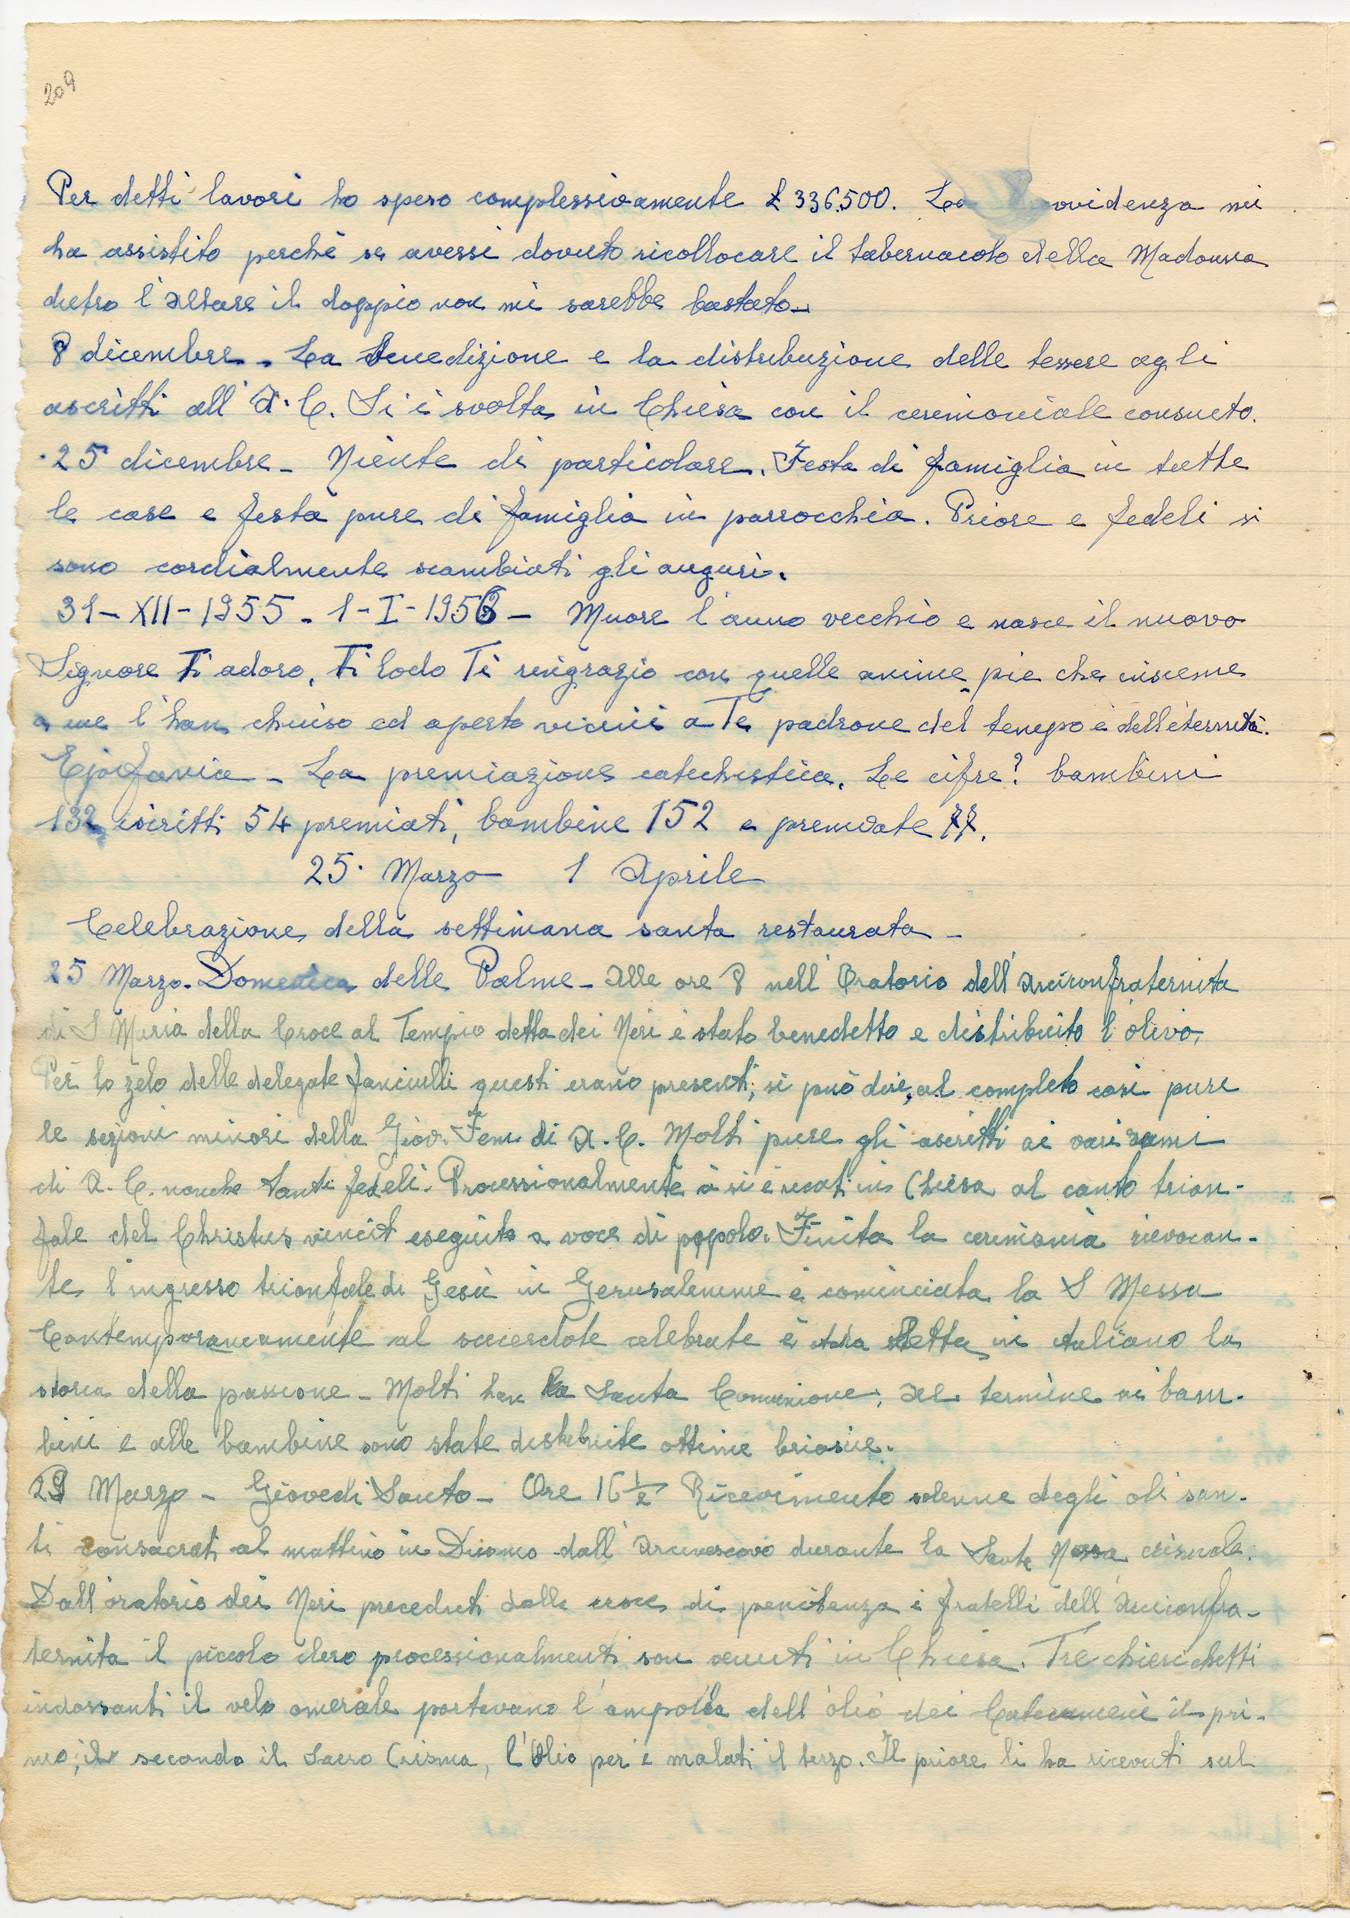 209
Per detti lavori ho speso complessivamente £ 336.500. La Provvidenza mi
ha assistito perchè se avessi dovuto ricollocare il tabernacolo della Madonna
dietro l'Altare il doppio non mi sarebbe bastato.
8 dicembre. La Benedizione e la distribuzione delle tessere agli
ascritti all'A.C. Si è svolta in Chiesa con il cerimoniale consueto.
25 dicembre - Niente di particolare. Festa di famiglia in tutte
le case e festa pure di famiglia in parrocchia. Priore e fedeli si
sono cordialmente scambiati gli auguri.
31-XII-1955 - 1-I-1956 - Muore l'anno vecchio e nasce il nuovo
Signore Ti adoro, Ti lodo Ti ringrazio con quelle anime pie che insieme
a me l'han chiuso ed aperto vicini a Te padrone del tempo e dell'eternità.
Epifania - La premiazione catechistica. Le cifre? bambini
132 iscritti 54 premiati, bambine 152 e premiate 77.
25 Marzo 1 Aprile
Celebrazione della settimana santa restaurata -
25 Marzo. Domenica delle Palme - Alle ore 8 nell'Oratorio dell'Arciconfraternita
di S Maria della Croce al Tempio detta dei Neri è stato benedetto e distribuito l'olivo.
Per lo zelo delle delegate fanciulli questi erano presenti, si può dire, al completo così pure
le sezioni minori della Giov. Fem di A.C. Molti pure gli ascritti ai vari rami
di A.C. nonche tanti fedeli. Processionalmente si è recati in Chiesa al canto trion-
fale del Christus vincit eseguito a voce di popolo. Finita la cerimonia rievocan-
te l'ingresso trionfale di Gesù in Gerusalemme è cominciata la S Messa
Contemporaneamente al sacerdote celebrate è stata letta in italiano la
storia della passione - Molti han la Santa Comunione. Al termine ai bam-
bini e alle bambine sono state distribuite ottime briosce.
29 Marzo - Giovedi Santo - Ore 16 1/2 Ricevimento solenne degli oli san-
ti consacrati al mattino in Duomo dall'Arcivescovo durante la Santa Messa crismale.
Dall'oratorio dei Neri preceduti dalla croce di penitenza i fratelli dell'Arciconfra-
ternita il piccolo clero processionalmenti son venuti in Chiesa. Tre chierichetti
indossanti il velo omerale portavano l'ampolla dell'olio dei Catecumeni il pri-
mo, il secondo il Sacro Crisma, l'Olio per i malati il terzo. Il priore li ha ricevuti sul